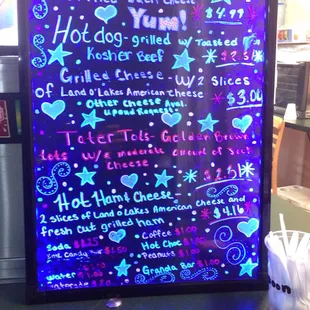 Yum! $4.99
Hotdog - grilled w/ Toasted
Kosher Beef
Grilled Cheese - w/ 2 Slices
of Land O'Lakes American Cheese
Other Cheese Aval. $3.06
Upond Request
Tater Tots - Golden Brown
Cheese
Hot Ham & Cheese -
2 slices of Land O'Lakes American Cheese and
fresh cut grilled ham $4.16
Coffee $1.00
Soda $1.25
Hot Choc $1.00
Candy
Peanuts $1.00
Water
Granda Bar $1.00